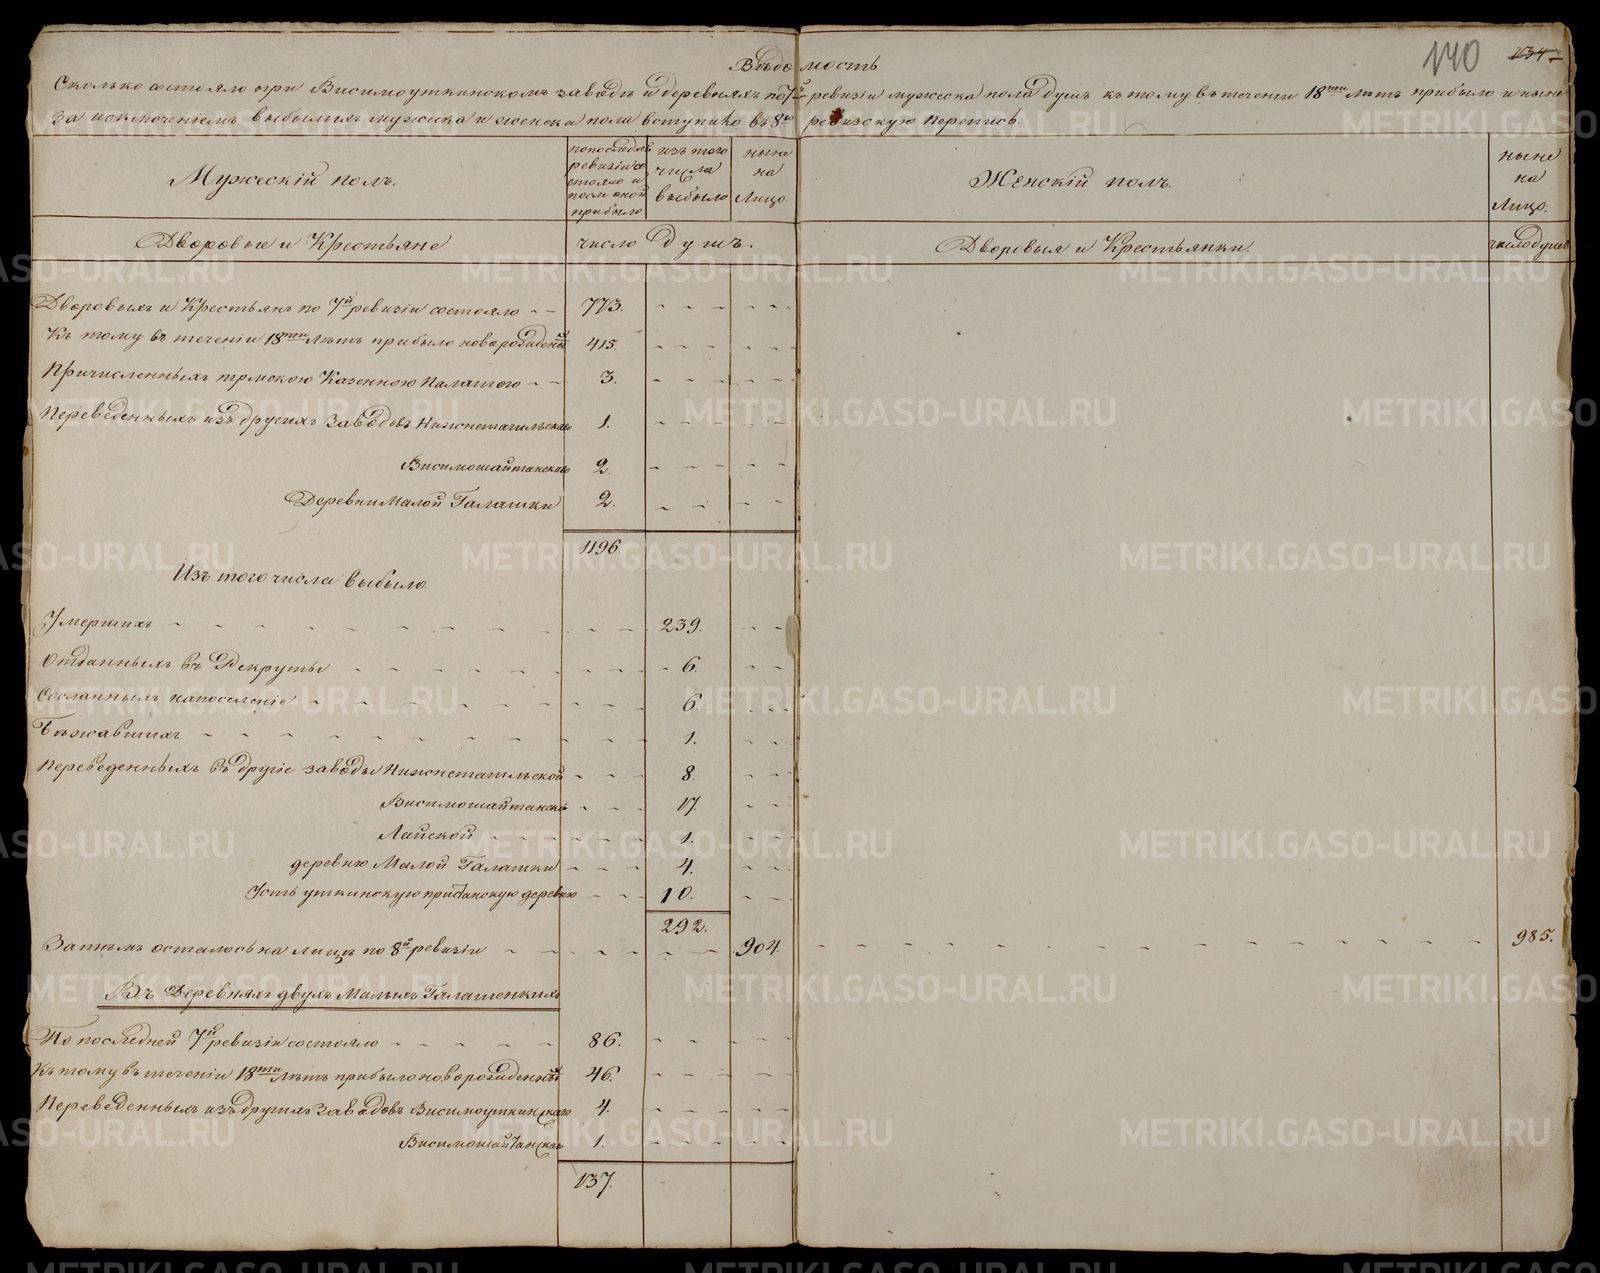 140 134
Вѣдомость
Сколько состояло при Висимоуткинскомъ заводѣ и деревняхъ по 7й ревизіи мужеска пола душъ къ тому въ теченіи 18ти лѣтъ прибыло и ныне
За исключеніемъ выбылыхъ мужеска и женска пола вступило въ 8ю ревизскую перепись.
Мужескій полъ.
по последней ревизіи состояло и после оной прибыло
изъ того числа выбыло
ныне на Лицо.
Женскій полъ.
ныне на Лицо.
Дворовые и Крестьяне число душъ. Дворовыя и Крестьянки. число душъ
Дворовыхъ и Крестьянъ по 7й ревизіи состояло 773.
Къ тому въ теченіи 18ти лѣтъ прибыло новорожденныхъ 415.
Причисленныхъ пермскою Казенною Палатою 3.
Переведенныхъ изъ другихъ заводовъ Нижнетагильскаго 1.
Висимошайтанскаго 2.
Деревни Малой Галашки 2.
1196.
Изъ того числа выбыло.
Умершихъ 239.
Отданныхъ въ Рекруты 6.
Сосланныхъ на поселеніе 6.
Бѣжавшихъ 1.
Переведенныхъ въ другіе заводы Нижнетагильской 8.
Висимошайтанской 17.
Лайской 1.
деревню Малой Галашки 4.
Усть уткинскую пристанскую деревню 10.
292.
Затемъ осталось на лицѣ по 8й ревизіи 904. 985.
Въ Деревняхъ двухъ Малыхъ Галашенкихъ
По последней 7й ревизіи состояло 86.
Къ тому въ теченіи 18ти лѣтъ прибыло новорожденныхъ 46.
Переведенныхъ изъ другихъ заводовъ Висимоуткинскаго 4.
Висимошайтанскаго 1.
137.
METRIKI.GASO-URAL.RU